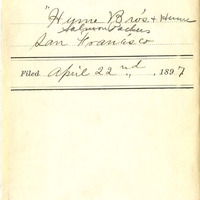 "Hyme Bro's & Hume
Salmon Packers
San Francisco
Filed April 22nd, 1897